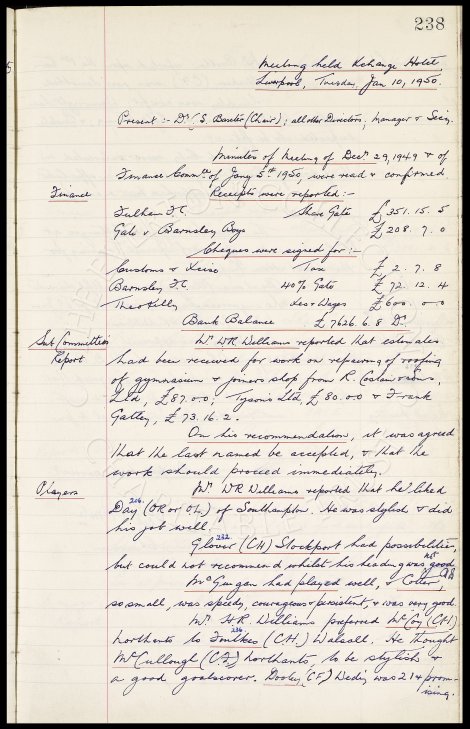 238
5
Meeting held Xchange Hotel
Liverpool, Tuesday, Jan 10, 1950.
Present :- Dr. C. S. Baxter (Chair); all other Directors, Manager & Secy.
Minutes of Meeting of Decr. 29, 1949 & of
Finance Commttee of Jany 5th 1950, were read & confirmed
Finance
Receipts were reported :-
Fulham F.C. Share Gate £351. 15. 5
Gate v Barnsley Boys £208. 7. 0
Cheques were signed for :-
Customs & Xcise Tax £ 2. 7. 8
Barnsley F.C. 40% Gate £ 72. 12. 4
Theo Kelly Wages £600. 0. 0
Bank Balance £7626. 6. 8 Dr.
Sub Committee's
Report
Mr. WR Williams reported that estimates
had been received for work on repairing of roofing
of gymnasium & joiners shop from R. Costain & Sons,
Ltd, £87. 0. 0; Tysons Ltd, £80. 0. 0 & Frank
Gattey, £73. 16. 2.
On his recommendation, it was agreed
that the last named be accepted, & that the
work should proceed immediately.
Players
Mr. WR Williams reported that he liked
Day (OR or OL) of Southampton. He was stylish & did
his job well.
232
Glover (CH) Stockport had possibilities,
but could not recommend whilst his heading was not good
McGuigan had played well, &
so small, was speedy, courageous & persistent, & was very good.
Mr. HR Williams preferred McCoy (CH)
Northants to (CH) Walsall. He thought
McCullough (CF) Northants, to be stylish &
a good goalscorer. Dooley (CF) Wedy was 21 & prom-
ising.